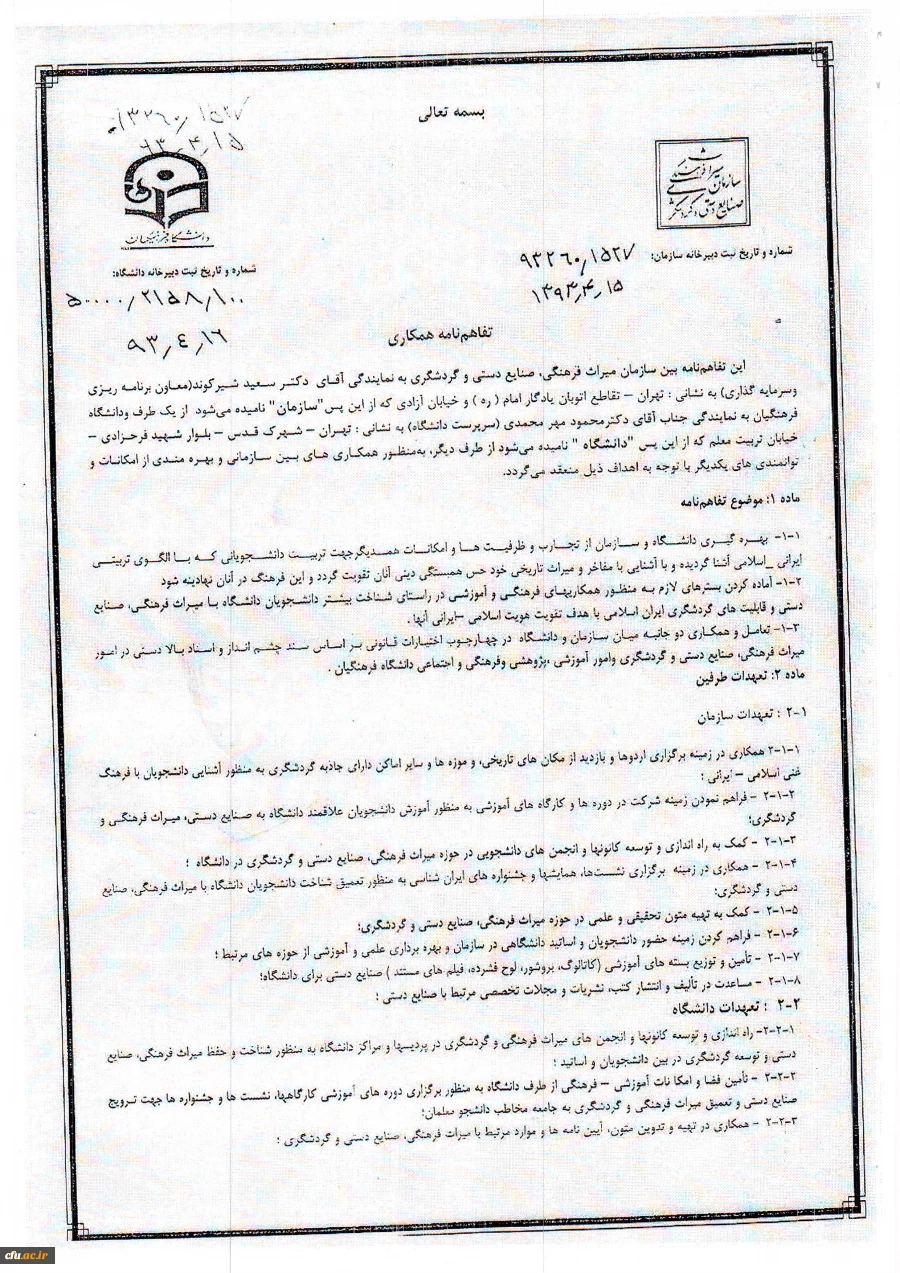 بسمه تعالی
۹۳۲۶۰/۱۵۲۷
۹۳/۴/۱۵
سازمان میراث فرهنگی
صنایع دستی و گردشگری
دانشگاه فرهنگیان
شماره و تاریخ ثبت دبیرخانه سازمان: ۹۳۲۶۰/۱۵۲۷
۱۳۹۳/۴/۱۵
شماره و تاریخ ثبت دبیرخانه دانشگاه:
۵۰۰۰۰/۲۱۵۸/۱۰۰
۹۳/۴/۱۶
تفاهم‌نامه همکاری
این تفاهم‌نامه بین سازمان میراث فرهنگی، صنایع دستی و گردشگری به نمایندگی آقای دکتر سعید شیرکوند(معاون برنامه ریزی
وسرمایه گذاری) به نشانی : تهران – تقاطع اتوبان یادگار امام ( ره ) و خیابان آزادی که از این پس"سازمان" نامیده می‌شود از یک طرف ودانشگاه
فرهنگیان به نمایندگی جناب آقای دکترمحمود مهر محمدی (سرپرست دانشگاه) به نشانی : تهران – شهرک قدس – بلوار شهید فرحزادی –
خیابان تربیت معلم که از این پس "دانشگاه " نامیده می‌شود از طرف دیگر، به‌منظور همکاری های بین سازمانی و بهره مندی از امکانات و
توانمندی های یکدیگر با توجه به اهداف ذیل منعقد می‌گردد.
ماده ۱: موضوع تفاهم‌نامه
۱-۱- بهره گیری دانشگاه و سازمان از تجارب و ظرفیت ها و امکانات همدیگرجهت تربیت دانشجویانی که با الگوی تربیتی
ایرانی _اسلامی آشنا گردیده و با آشنایی با مفاخر و میراث تاریخی خود حس همبستگی دینی آنان تقویت گردد و این فرهنگ در آنان نهادینه شود
۱-۲- آماده کردن بسترهای لازم به منظور همکاریهای فرهنگی و آموزشی در راستای شناخت بیشتر دانشجویان دانشگاه با میراث فرهنگی، صنایع
دستی و قابلیت های گردشگری ایران اسلامی با هدف تقویت هویت اسلامی –ایرانی آنها .
۱-۳- تعامل و همکاری دو جانبه میان سازمان و دانشگاه در چهارچوب اختیارات قانونی بر اساس سند چشم انداز و اسناد بالا دستی در امور
میراث فرهنگی، صنایع دستی و گردشگری وامور آموزشی ،پژوهشی وفرهنگی و اجتماعی دانشگاه فرهنگیان .
ماده ۲: تعهدات طرفین
۲-۱ : تعهدات سازمان
۲-۱-۱- همکاری در زمینه برگزاری اردوها و بازدید از مکان های تاریخی، و موزه ها و سایر اماکن دارای جاذبه گردشگری به منظور آشنایی دانشجویان با فرهنگ
غنی اسلامی – ایرانی ؛
۲-۱-۲ – فراهم نمودن زمینه شرکت در دوره ها و کارگاه های آموزشی به منظور آموزش دانشجویان علاقمند دانشگاه به صنایع دستی، میراث فرهنگی و
گردشگری؛
۲-۱-۳ – کمک به راه اندازی و توسعه کانونها و انجمن های دانشجویی در حوزه میراث فرهنگی، صنایع دستی و گردشگری در دانشگاه ؛
۲-۱-۴ – همکاری در زمینه برگزاری نشست‌ها، همایشها و جشنواره های ایران شناسی به منظور تعمیق شناخت دانشجویان دانشگاه با میراث فرهنگی، صنایع
دستی و گردشگری؛
۲-۱-۵ – کمک به تهیه متون تحقیقی و علمی در حوزه میراث فرهنگی، صنایع دستی و گردشگری؛
۲-۱-۶ – فراهم کردن زمینه حضور دانشجویان و اساتید دانشگاهی در سازمان و بهره برداری علمی و آموزشی از حوزه های مرتبط ؛
۲-۱-۷ – تأمین و توزیع بسته های آموزشی (کاتالوگ، بروشور، لوح فشرده، فیلم های مستند ) صنایع دستی برای دانشگاه؛
۲-۱-۸ – مساعدت در تألیف و انتشار کتب، نشریات و مجلات تخصصی مرتبط با صنایع دستی ؛
۲-۲ : تعهدات دانشگاه
۲-۲-۱- راه اندازی و توسعه کانونها و انجمن های میراث فرهنگی و گردشگری در پردیسها و مراکز دانشگاه به منظور شناخت و حفظ میراث فرهنگی، صنایع
دستی و توسعه گردشگری در بین دانشجویان و اساتید ؛
۲-۲-۲ – تأمین فضا و امکا نات آموزشی – فرهنگی از طرف دانشگاه به منظور برگزاری دوره های آموزشی کارگاهها، نشست ها و جشنواره ها جهت ترویج
صنایع دستی و تعمیق میراث فرهنگی و گردشگری به جامعه مخاطب دانشجو معلمان؛
۲-۲-۳ – همکاری در تهیه و تدوین متون، آیین نامه ها و موارد مرتبط با میراث فرهنگی، صنایع دستی و گردشگری ؛
cfu.ac.ir